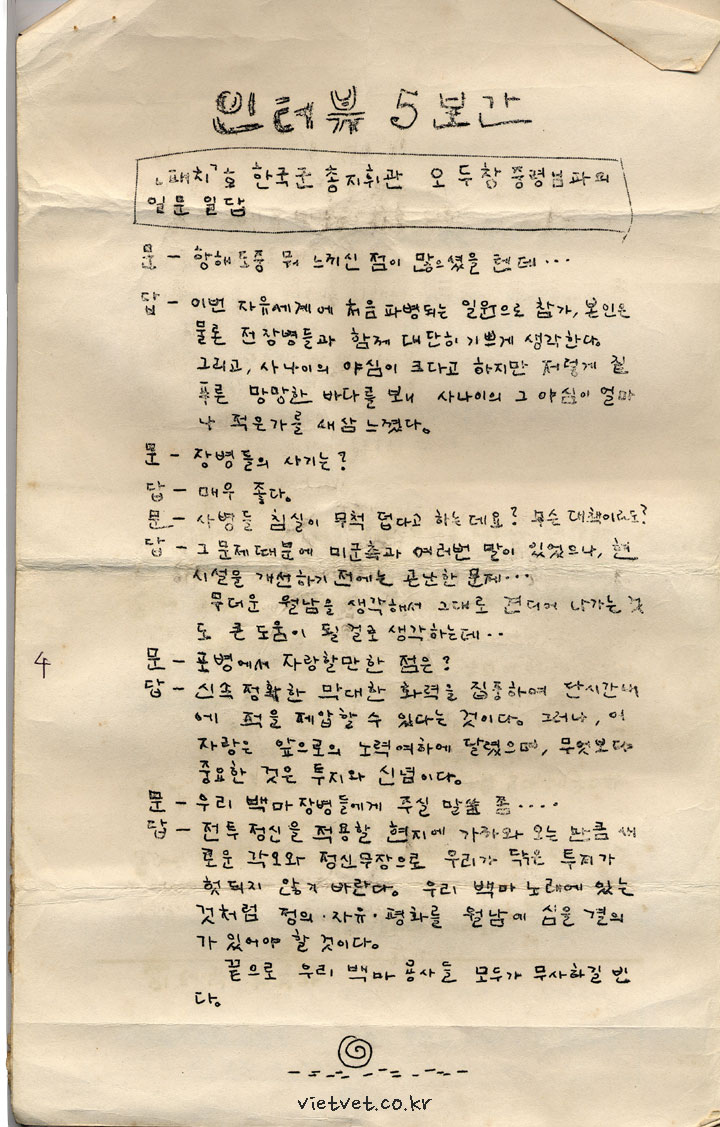 인터뷰 5분간
「패치」호 한국군 총지휘관 오두창 중령님과의
일문일답
문 - 항해도중 뭐 느끼신 점이 많으셨을 텐데...
답 - 이번 자유세계에 처음 파병되는 일원으로 참가, 본인은
물론 전장병들과 함께 대단히 기쁘게 생각한다.
그리고, 사나이의 야심이 크다고 하지만 저렇게 짙
푸른 망망한 바다를 보니 사나이의 그 야심이 얼마
나 적은가를 새삼 느꼈다.
문 - 장병들의 사기는?
답 - 매우 좋다.
문 - 사병들 침실이 무척 덥다고 하는데요? 무슨 대책이라도?
답 - 그 문제 때문에 미군측과 여러번 말이 있었으나, 현
시설을 개선하기 전에는 곤난한 문제...
무더운 월남을 생각해서 그대로 견디어 나가는 것
도 큰 도움이 될 걸로 생각하는데..
문 - 포병에서 자랑할만한 점은?
4
답 - 신속 정확한 막대한 화력을 집중하여 단시간내
에 적을 제압할 수 있다는 것이다. 그러나, 이
자랑은 앞으로의 노력여하에 달렸으며, 무엇보다
중요한 것은 투지와 신념이다.
문 - 우리 백마장병들에게 주실 말씀 좀....
답 - 전투정신을 적용할 현지에 가까와 오는 만큼 새
로운 각오와 정신무장으로 우리가 닦은 투지가
헛되지 않기 바란다. 우리 백마 노래에 있는
것처럼 정의·자유·평화를 월남에 심을 결의
가 있어야 할 것이다.
끝으로 우리 백마 용사들 모두가 무사하길 빈
다.
vietvet.co.kr